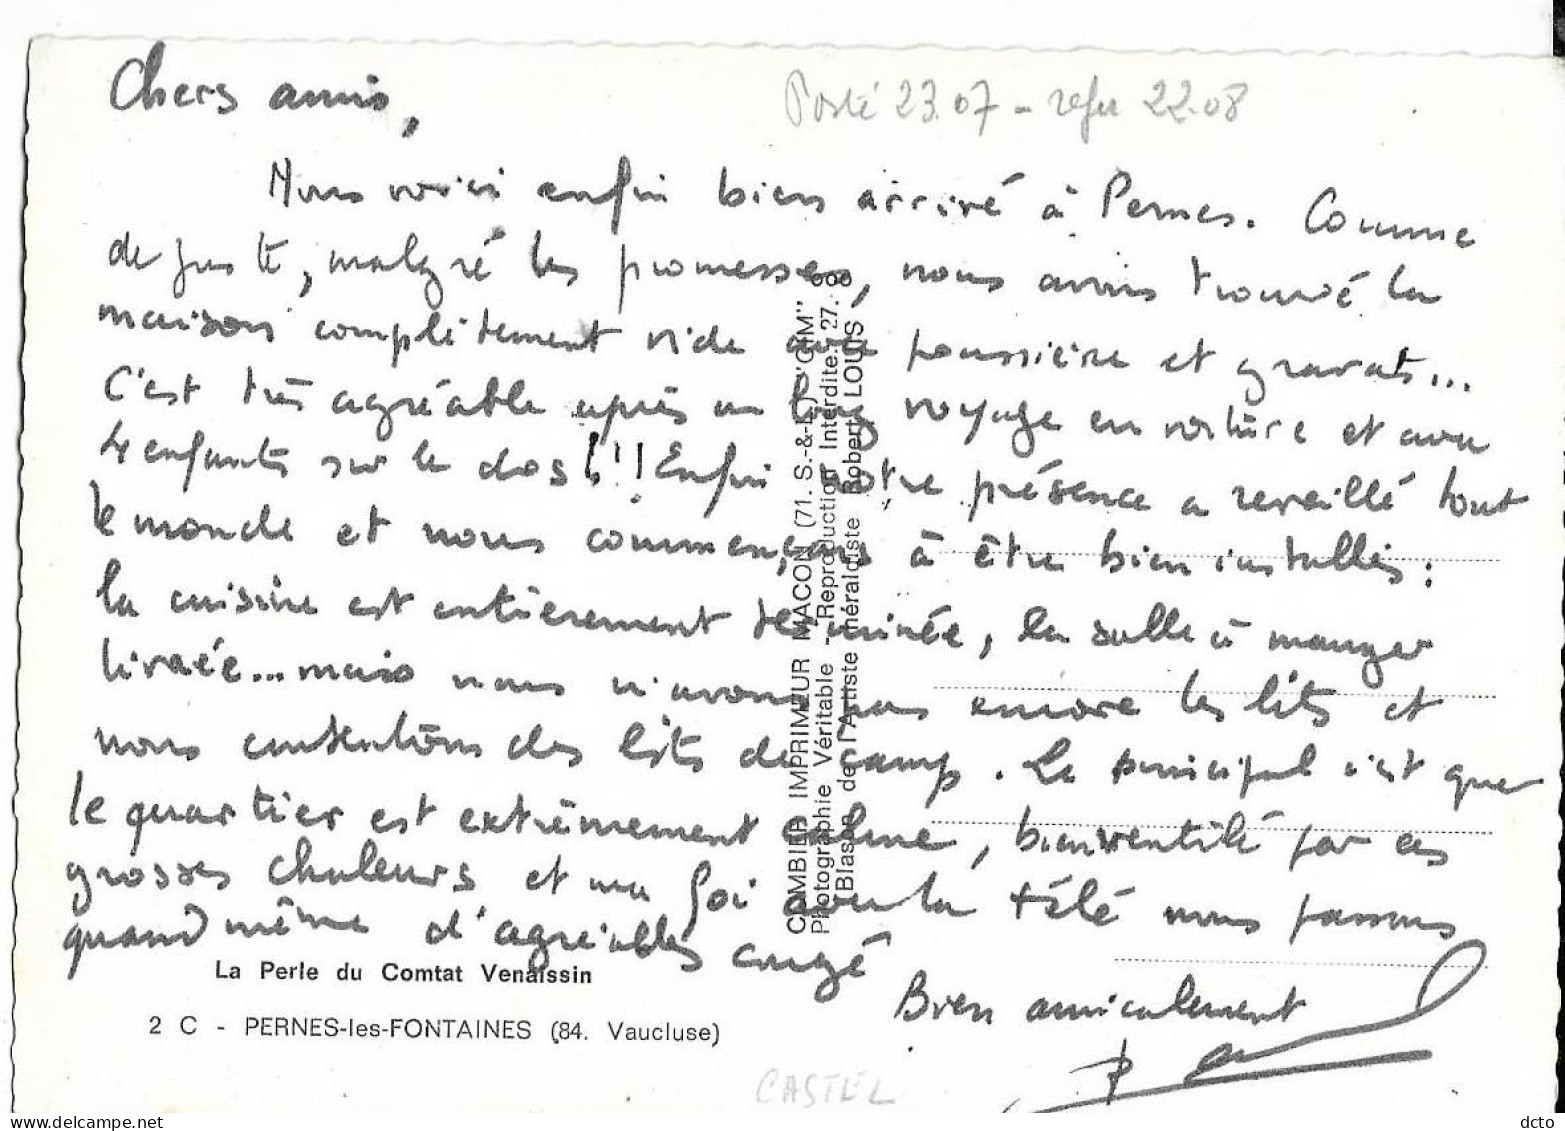 Chers amis,
Posté 23.07 - reçu 22.08
Nous voici enfin bien arrivé à Pernes. Comme
de juste, malgré les promesses, nous avons trouvé la
maison complètement vide avec poussière et gravats...
C'est très agréable après un long voyage en voiture et avec
4 enfants sur le dos !!! Enfin notre présence a réveillé tout
le monde et nous commençons à être bien installés :
la cuisine est entièrement terminée, la salle à manger
livrée... mais nous n'avons pas encore les lits et
nous contentons des lits de camp. Le principal c'est que
le quartier est extrêmement calme, bien ventilé par ces
grosses chaleurs et ma foi avec la télé nous passons
quand même d'agréables congé
Bien amicalement
La Perle du Comtat Venaissin
2 C - PERNES-les-FONTAINES (84. Vaucluse)
CASTEL
COMBIER IMPRIMEUR MACON (71. S.-&-L.) "CIM"
Photographie Véritable - Reproduction Interdite. 27. 8
(Blason de l'Artiste héraldiste Robert LOUIS
dcto